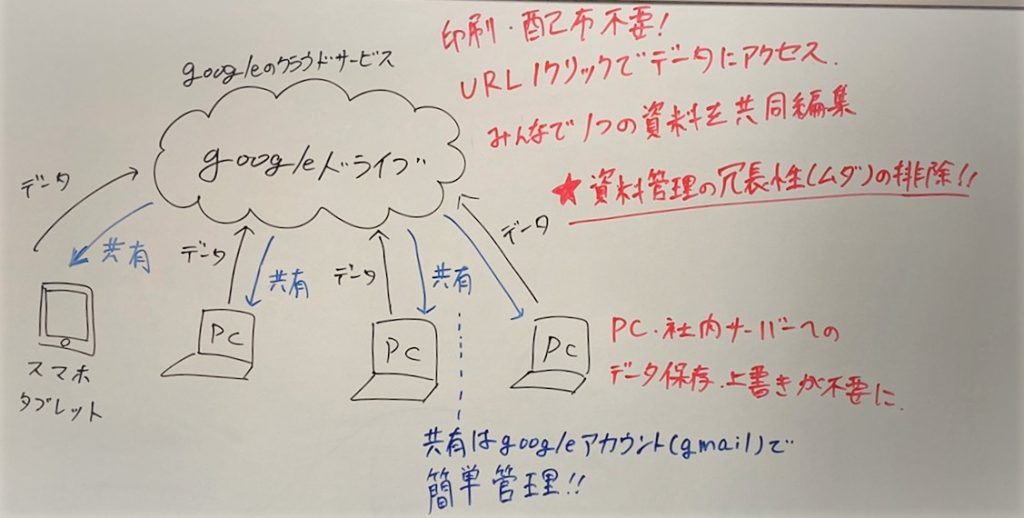 googleのクラウドサービス
googleドライブ
印刷・配布不要!
URL1クリックでデータにアクセス.
みんなで1つの資料を共同編集
★資料管理の冗長性(ムダ)の排除!!
データ
共有
データ
共有
データ
共有
データ
スマホ
タブレット
PC
PC
PC
PC・社内サーバーへの
データ保存、上書きが不要に.
共有はgoogleアカウント(gmail)で
簡単管理!!